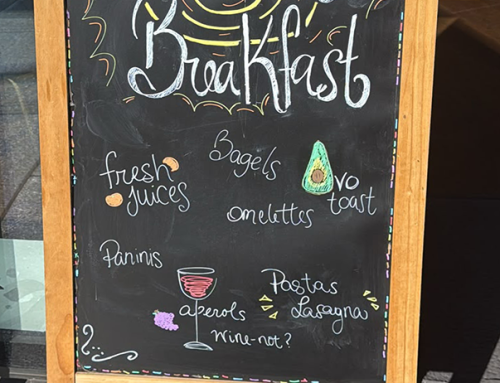 Breakfast
Bagels
fresh
juices
vo
toast
omelettes
Paninis
Pastas
Lasagna
aperols
Wine-not?